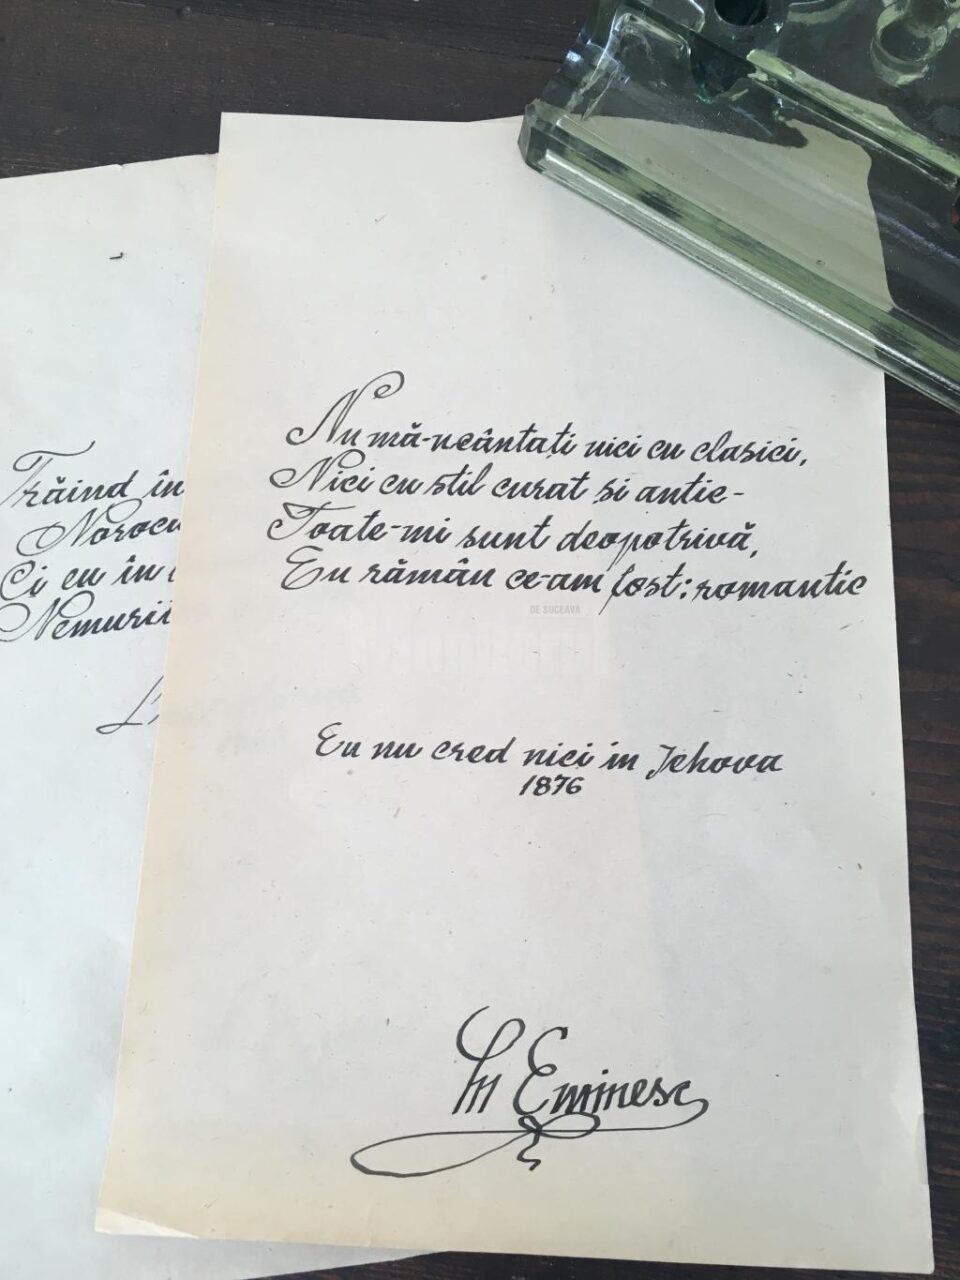 Trăind în
Norocu
Ci eu în
Nemurii
Nu mă-ncântați nici cu clasici,
Nici cu stil curat si antic-
Toate-mi sunt deopotrivă,
Eu rămân ce-am fost: romantic
DE SUCEAVA
Eu nu cred nici in Jehova
1876
M Eminesc